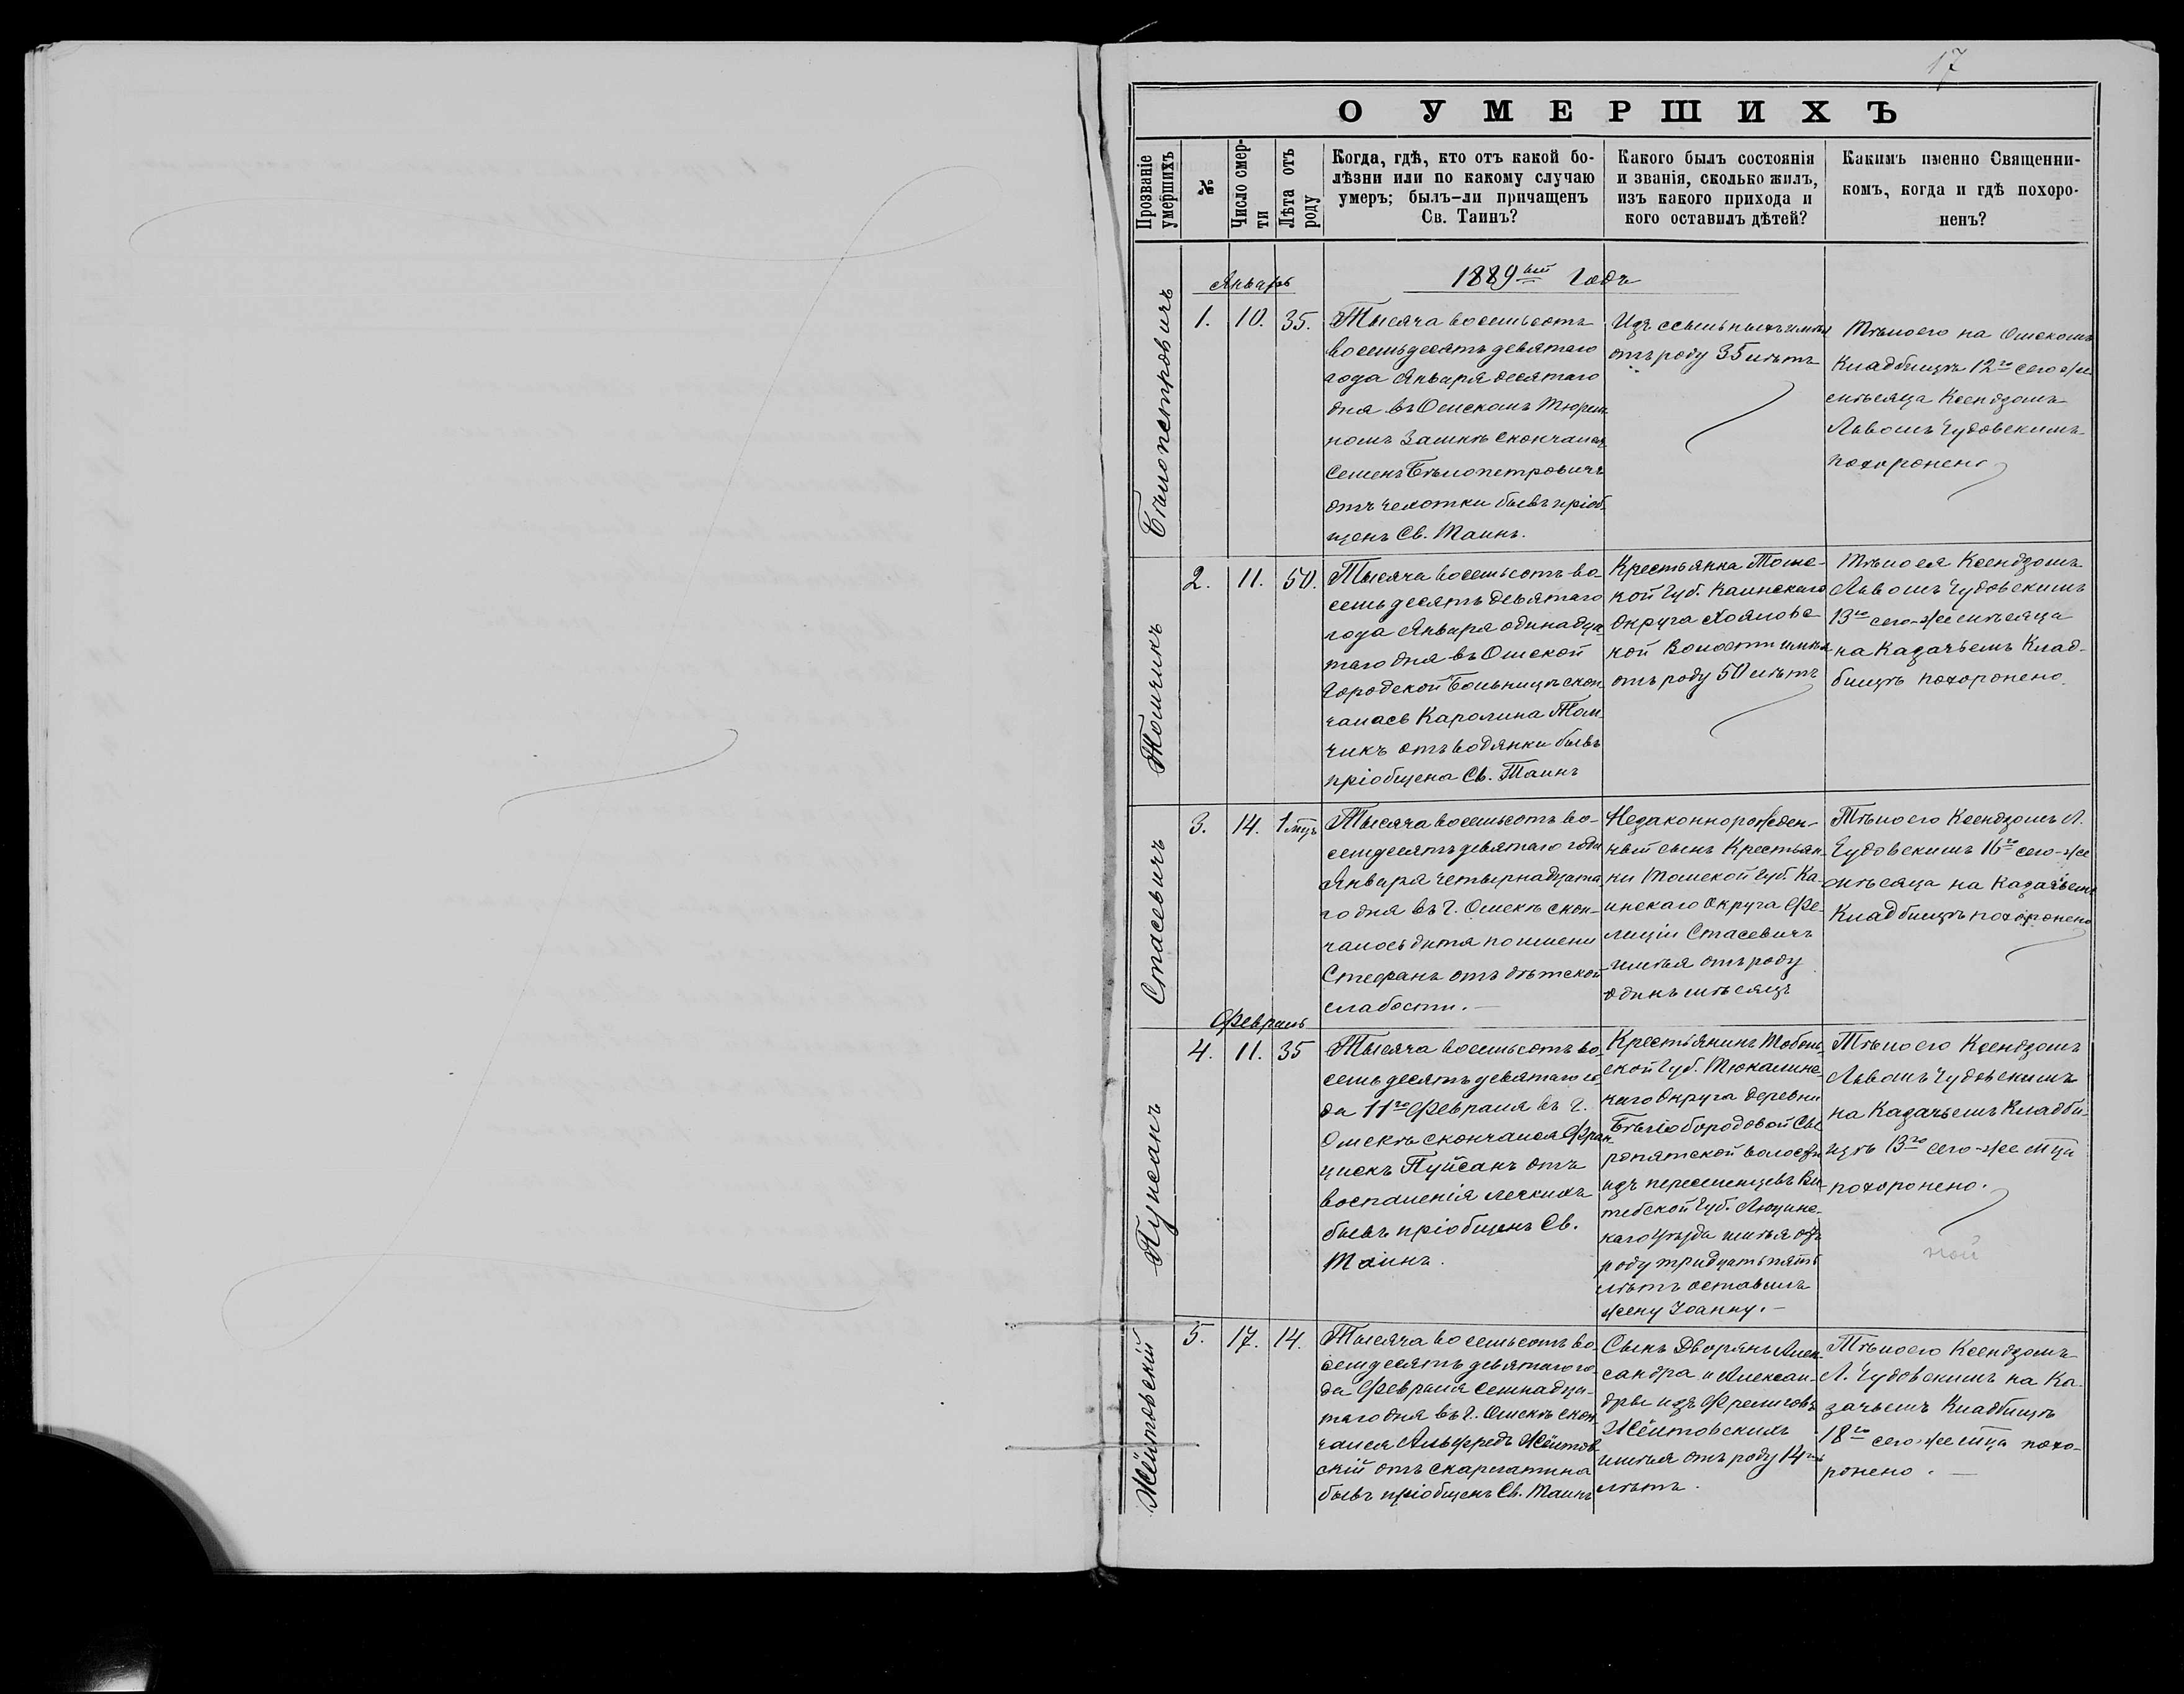 17
О УМЕРШИХЪ
Прозваніе умершихъ
№
Число смер-
ти
Лѣта отъ
роду
Когда, гдѣ, кто отъ какой бо-
лѣзни или по какому случаю
умеръ; былъ-ли причащенъ
Св. Таинъ?
Какого былъ состоянія
и званія, сколько жилъ,
изъ какого прихода и
кого оставилъ дѣтей?
Какимъ именно Священни-
комъ, когда и гдѣ похоро-
ненъ?
Январь
1889ый Годъ
Бѣлопетровичъ
1.
10.
35.
Тысяча восемьсотъ
восемьдесятъ девятаго
года Января десятаго
дня въ Омскомъ Тюрем-
номъ Замкѣ скончался
Семенъ Бѣлопетровичъ
отъ чехотки бывъ пріоб-
щенъ Св. Таинъ.
Изъ ссыльныхъ имѣя
отъ роду 35 лѣтъ
Тѣло его на Омскомъ
Кладбищѣ 12го сего же
мѣсяца Ксендзомъ
Львомъ Чудовскимъ
похоронено
Томчикъ
2.
11.
50.
Тысяча восемьсотъ во-
семьдесятъ девятаго
года Января одинадца-
таго дня въ Омской
Городской Больницѣ скон-
чалась Каролина Том-
чикъ отъ водянки бывъ
пріобщена Св. Таинъ
Крестьянка Томс-
кой Губ. Каинскаго
Округа
кой Волости имѣя
отъ роду 50 лѣтъ
Тѣло ея Ксендзомъ
Львомъ Чудовскимъ
13го сего-же мѣсяца
на Казачьемъ Клад-
бищѣ похоронено.
Стасевичъ
3.
14.
1 мцъ
Тысяча восемьсотъ во-
семдесятъ девятаго года
Января четырнадцата-
го дня въ г. Омскѣ скон-
чалось дитя по имени
Стефанъ отъ дѣтской
слабости.-
Незаконнорожден-
ный сынъ Крестьян-
ки Томской Губ. Ка-
инскаго Округа Фе-
лиціи Стасевичъ
имѣя отъ роду
одинъ мѣсяцъ
Тѣло его Ксендзомъ Л.
Чудовскимъ 16го сего-же
мѣсяца на Казачьемъ
Кладбищѣ похоронено
Февраль
Пуйсанъ
4.
11.
35
Тысяча восемьсотъ во-
семьдесятъ девятаго го-
да 11го Февраля въ г.
Омскѣ скончался Фран-
цискъ Пуйсанъ отъ
воспаленія легкихъ
бывъ пріобщенъ Св.
Таинъ.
Крестьянинъ Тоболь-
ской Губ. Тюкалинс-
каго Округа деревни
Бѣлобородовой Сы-
ропятской волости
изъ переселенцевъ Ви-
тебской Губ. Люцинс-
каго Уѣзда имѣя отъ
роду тридцать пять
лѣтъ оставилъ
жену Іоанну.-
Тѣло его Ксендзомъ
Львомъ Чудовскимъ
на Казачьемъ Кладби-
щѣ 13го сего-же мца
похоронено.
ной
5.
17.
14.
Тысяча восемьсотъ во-
семдесятъ девятаго го-
да Февраля семнадца-
таго дня въ г. Омскѣ скон-
чался Альфредъ
скій отъ скарлатина
бывъ пріобщенъ Св. Таинъ
Сынъ Дворянъ Алек-
сандра и Алексан-
дры изъ
имѣя отъ роду 14
лѣтъ.
Тѣло его Ксендзомъ
Л. Чудовскимъ на Ка-
зачьемъ Кладбищѣ
18го сего-же мца похо-
ронено.-